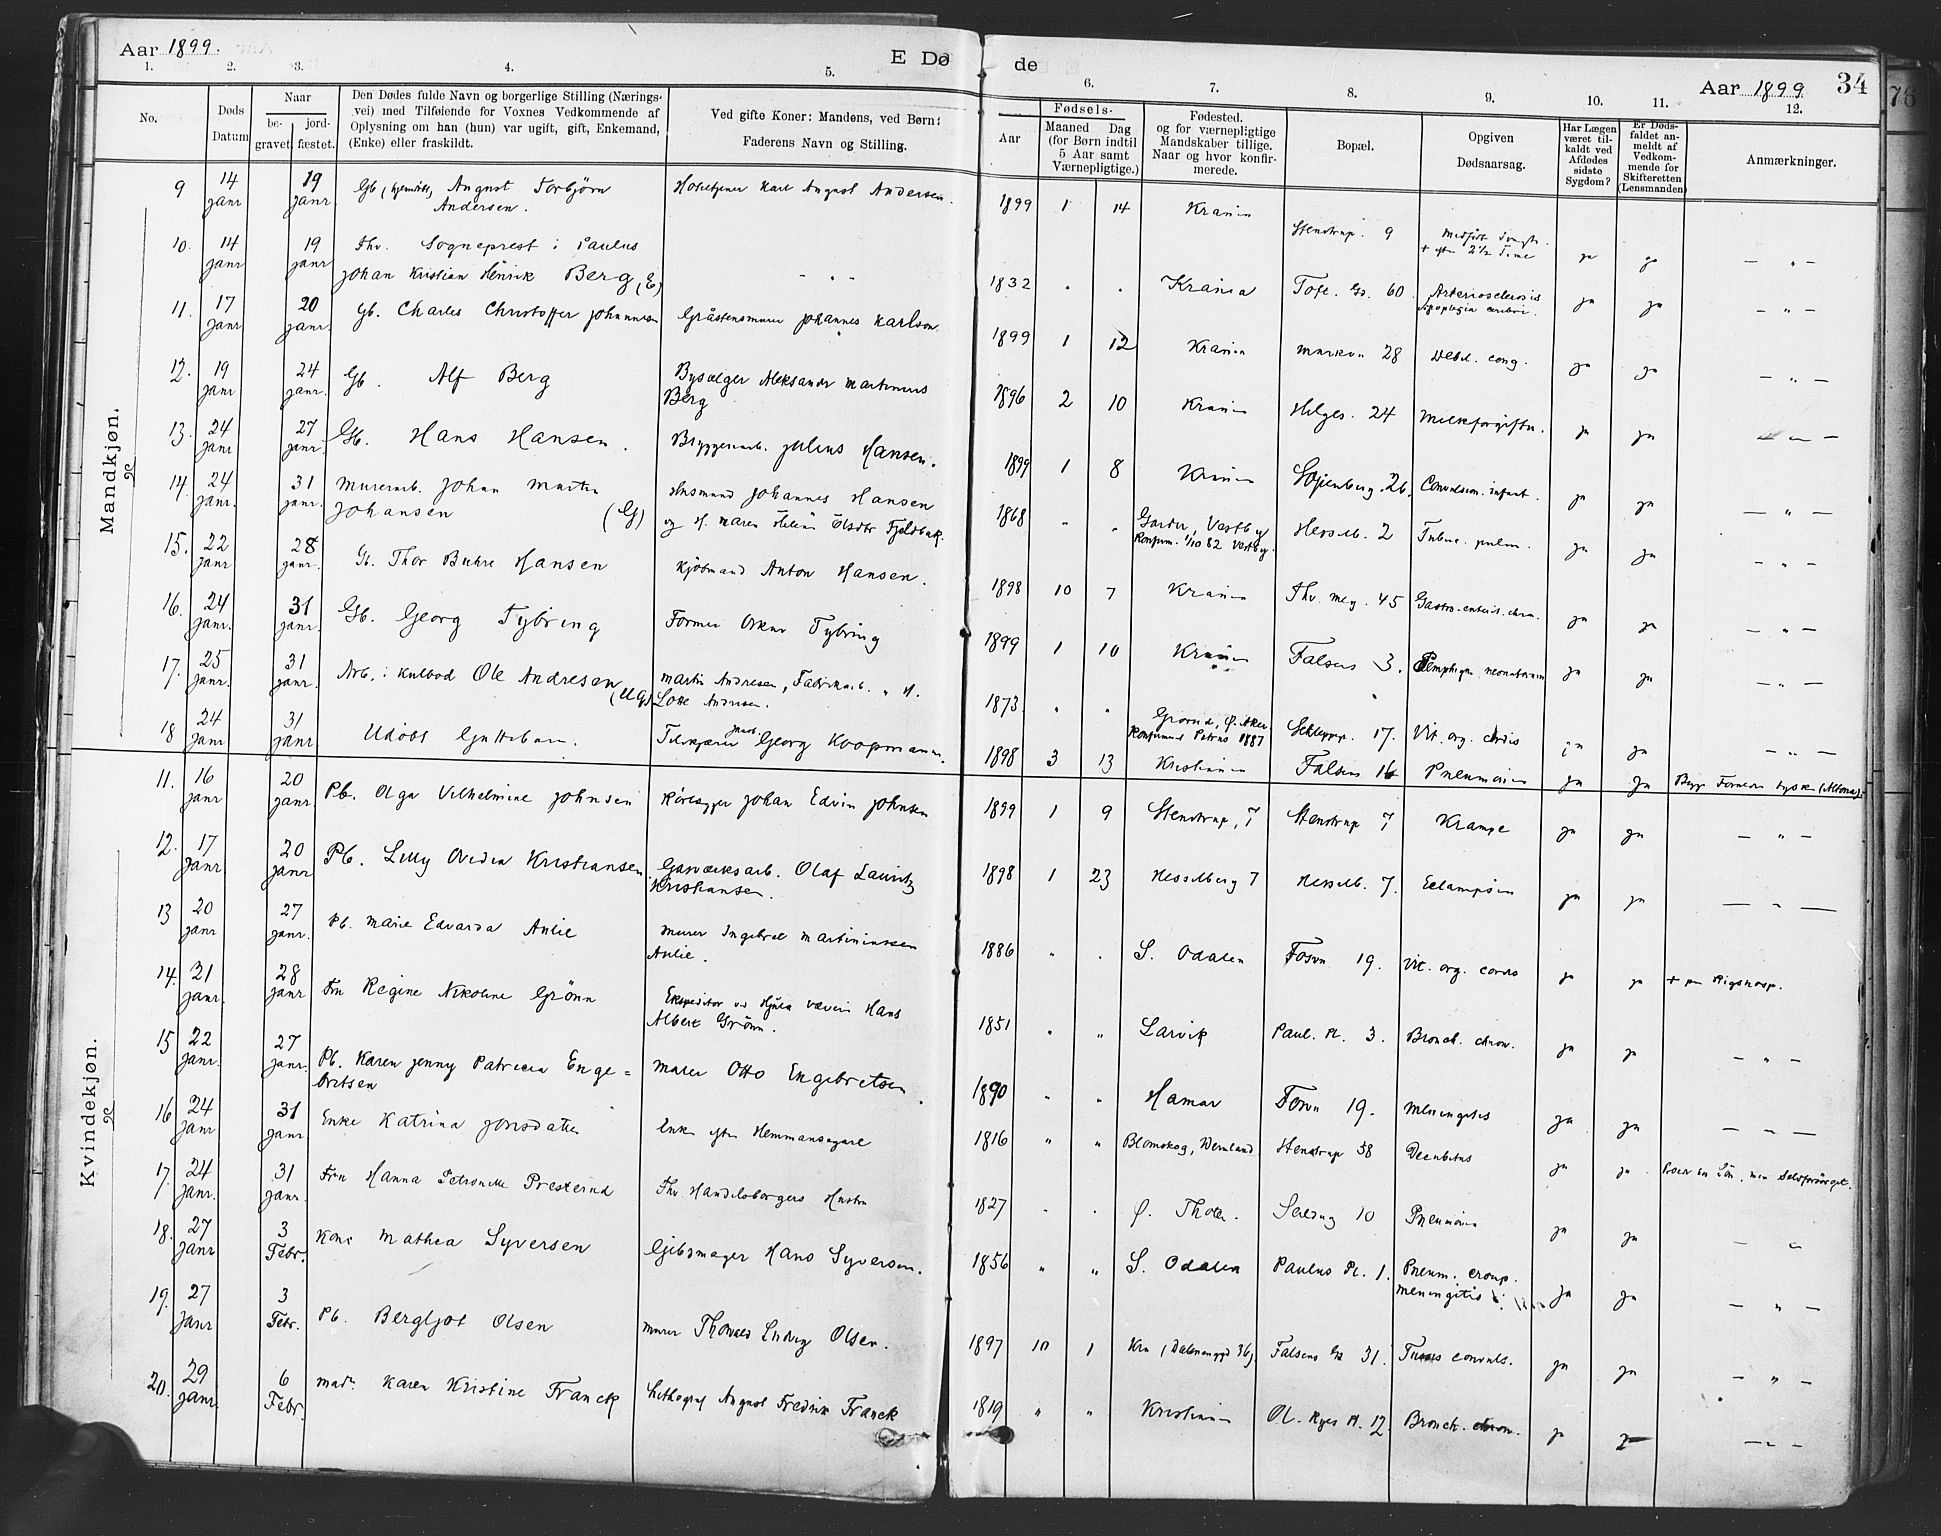 Aar 1899.
E Døde
Aar 1899
34
1. 2. 3. 4. 5. 6. 7. 8. 9. 10. 11. 12.
No.
Døds Datum
Naar
be- gravet.
jord- fæstet.
Den Dødes fulde Navn og borgerlige Stilling (Nærings-
vei) med Tilføiende for Voxnes Vedkommende af
Oplysning om han (hun) var ugift, gift, Enkemand,
(Enke) eller fraskildt.
Ved gifte Koner: Mandens, ved Børn:
Faderens Navn og Stilling.
Fødsels-
Aar
Maaned Dag
(for Børn indtil
5 Aar samt
Værnepligtige.)
Fødested.
og for værnepligtige
Mandskaber tillige.
Naar og hvor konfir-
merede.
Bopæl.
Opgiven
Dødsaarsag.
Har Lægen
været til-
kaldt ved
Afdødes
sidste
Sygdom?
Er Døds-
faldet an-
meldt af
Vedkom-
mende for
Skifteretten
(Lensmanden)
Anmærkninger.
Mandkjøn.
9 14 janr 19 janr Gb. (hjemdøbt) August Torbjørn Hoteltjener Karl August Andersen. 1899 1 14 Krania Stenstrup. 9
Andersen. + efter 2 1/2 Time ja ja — " —
10. 14 janr 19 janr Fhv. Sogneprest i Paulus
Johan Kristian Henrik Berg (E) — " — 1832 " " Krania Toft. Gd. 60. Arteriosclerosis
Apoplexia cerebri. ja ja — " —
11. 17 janr 20 janr. Gb. Charles Christoffer Johannesen Gråstensmurer Johannes Karlson 1899 1 12 Krania Markvn 28 Debil. cong. ja ja — " —
12. 19 janr 24 janr. Gb. Alf Berg Bysælger Aleksander Martinius
Berg 1896 2 10 Krania Helges. 24 Melkforgiftn. ja ja — " —
13. 24 janr 27 janr. Gb. Hans Hansen. Bryggeriarb. Julius Hansen. 1899 1 8 Krania 26. Convulsion. infant. ja ja — " —
14. 24 janr. 31 janr. Murerarb. Johan Martin Husmand Johannes Hansen
Johansen (G) og H. Maren Helene Olsdtr Fjeldbak. 1868 " " Garder, Vestby
Konfirm. 1/10 82 Vestby. Hesselb. 2 Tuberc. pulm. ja ja — " —
15. 22 janr 28 janr. Gb. Thor Buhre Hansen Kjøbmand Anton Hansen. 1898 10 7 Krania Thv. Mey. 45 Gastro-enterit. chron. ja ja — " —
16. 24 janr. 31 janr. Gb. Georg Tybring Former Oskar Tybring 1899 1 10 Krania Falsens 3. Pemphigus neonatorum ja ja — " —
17. 25 janr. 31 janr. Arb. i Kulbod Ole Andresen (Ug) Martin Andresen, Fabrikarb. og H.
Lotte Andresen. 1873 " " Grorud, Ø. Aker
Konfirmeret Petrus 1887 Schleppegr. 17. Vit. org. cordis ja ja — " —
18 24 janr 31 janr. Udøbt Guttebarn. Georg Koopmann. 1898 3 13 Kristiania Falsens 16 Pneumonia ja ja Begge Forældre tyske (Altona).
Kvindekjøn.
11. 16 janr 20 janr. Pb. Olga Vilhelmine Johnsen Kjøresvend Johan Edvin Johnsen 1899 1 9 Stenstrup, 7 Stenstrup 7 Krampe ja ja — " —
12. 17 janr 20 janr Pb. Lilly Ovidia Kristiansen Gasværksarb. Olaf Lauritz
Kristiansen. 1898 1 23 Hesselberg 7 Hesselb. 7. Eclampsia ja ja — " —
13 20 janr. 27 janr. Pb. Marie Edvarda Aulie Murer Ingebret Martiniussen
Aulie. 1886 " " S. Odalen Fossvn 19. Vit. org. cordis ja ja + paa Rigshosp.
14. 21 janr. 28 janr Fru Regine Nikoline Grønn Ekspeditor ved Hjula væveri Hans
Albert Grønn. 1851 " " Larvik Paul. Pl. 3. Bronch. chron. ja ja — " —
15 22 janr. 27 janr. Pb. Karen Jenny Patricia Enge=
bretsen Maler Otto Engebretsen. 1890 " " Hamar Fossvn 19. Meningitis ja ja — " —
16 24 janr 31 janr Enke Katrina Jonsdatter Enke efter Hemmansegare 1816 " " Blomskog, Vermland Stenstrup 58 Decubitus ja ja
17. 24 janr. 31 janr. Fru Hanna Petronelle Presterud Fhv. Handelsborgers Hustru 1827 " " Ø. Thoten. Seildug 10 Pneumonia ja ja — " —
18. 27 janr 3 Febr. Kone Mathea Syversen Gibsmager Hans Syversen. 1856 " " S. Odalen Paulus Pl. 1. Pneum. croup.
Meningitis ja ja — " —
19. 27 janr 3 Febr. Pb. Bergljot Olsen Murer Thorvald Ludvig Olsen. 1897 10 1 Kra (Dælenenggd 36) Falsens Gd 31. Tussis convuls. ja ja — " —
20. 29 janr. 6 Febr. Madm. Karen Kristine Franck Lithograf August Fredrik Franck 1819 " " Kristiania Ol. Ryes Pl. 12 Bronch. chron. ja ja — " —